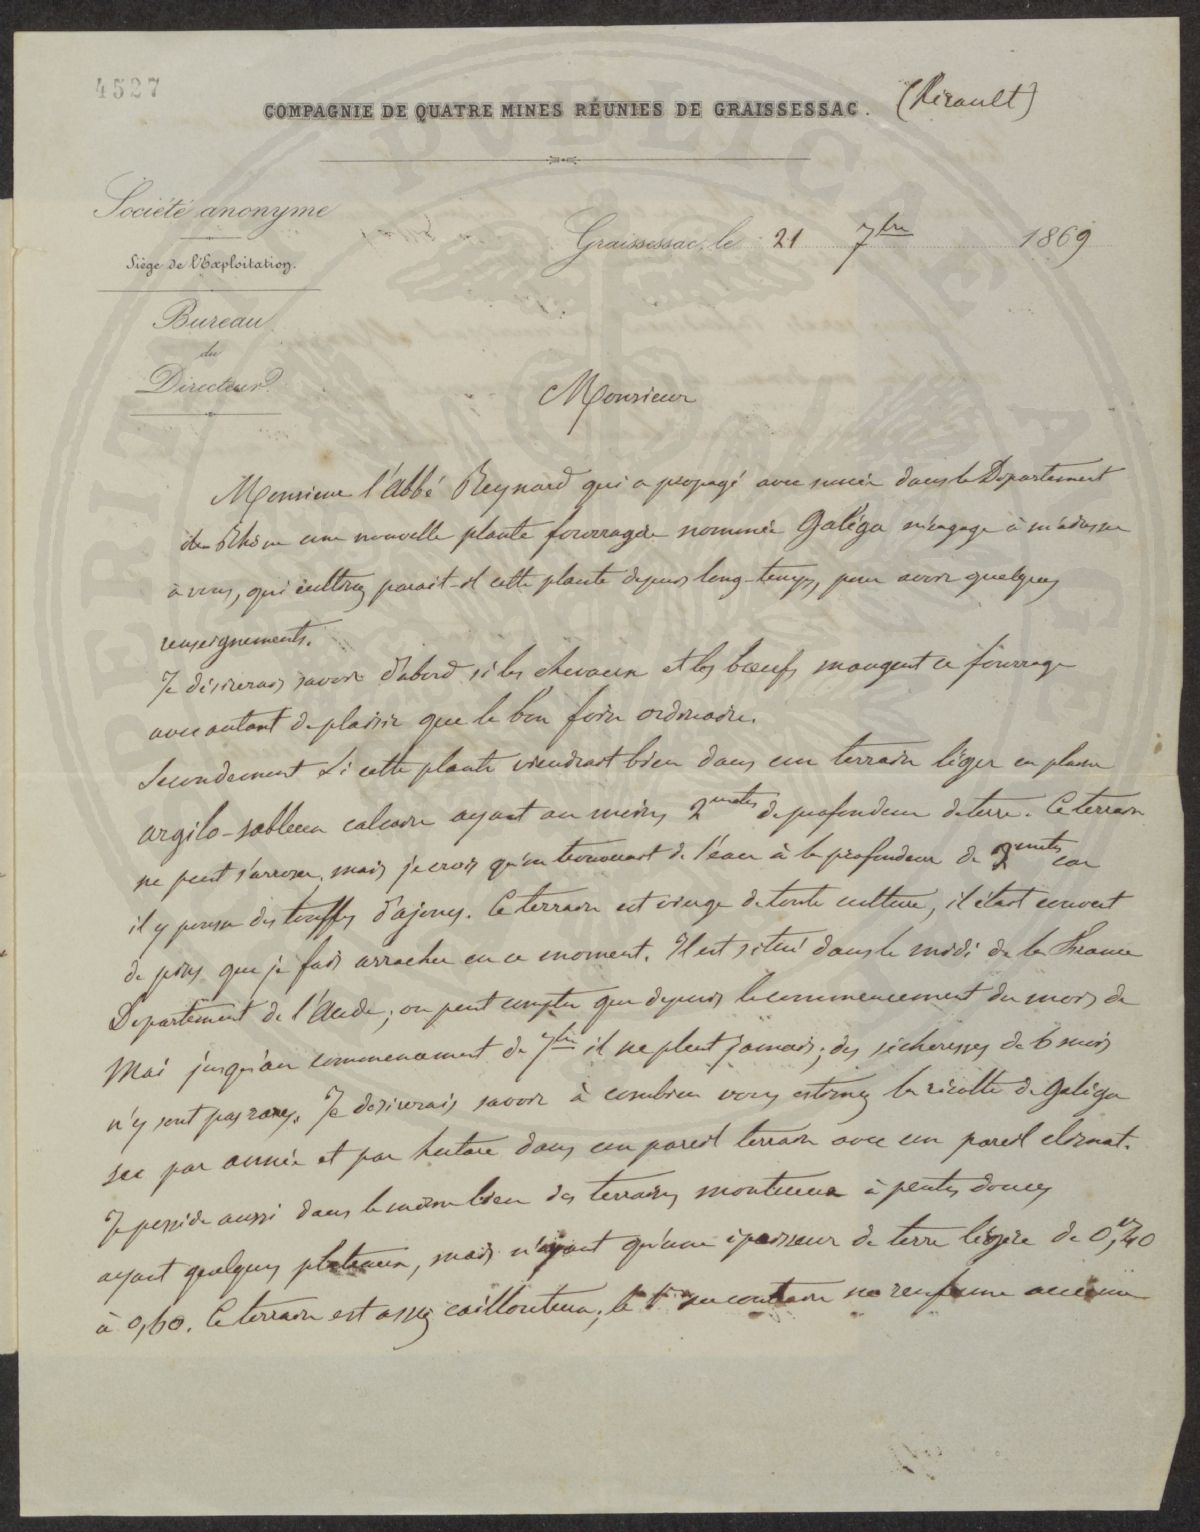 4527
COMPAGNIE DE QUATRE MINES RÉUNIES DE GRAISSESSAC. (Hérault)
Société anonyme
Siège de l'Exploitation.
Graissessac, le 21 7bre 1869
Bureau
du
Directeur
Monsieur
Monsieur l'Abbé Reynard qui a propagé avec succès dans le Département
du Rhône une nouvelle plante fourragère nommée Galéga m'engage à m'adresser
à vous, qui cultivez parait-il cette plante depuis long-temps, pour avoir quelques
renseignements.
Je désirerais savoir d'abord si les chevaux et les bœufs mangent ce fourrage
avec autant de plaisir que le bon foin ordinaire.
Secondement Si cette plante viendrait bien dans un terrain léger en plaine
argilo-sableux calcaire ayant au moins 2 mètres de profondeur de terre. Ce terrain
ne peut s'arroser, mais je crois qu'on trouverait de l'eau à la profondeur de 2 mètres car
il y pousse des touffes d'ajoncs. Ce terrain est vierge de toute culture, il était couvert
de pins que je fais arracher en ce moment. Il est situé dans le midi de la France
Département de l'Aude; on peut compter que depuis le commencement du mois de
Mai jusqu'au commencement de 7bre il ne pleut jamais; des sécheresses de 6 mois
n'y sont pas rares. Je désirerais savoir à combien vous estimez la récolte de galéga
sec par année et par hectare dans un pareil terrain avec un pareil climat.
Je possède aussi dans le même lieu des terrains montueux à pentes douces
ayant quelques plateaux, mais n'ayant qu'une épaisseur de terre légère de 0,m40
à 0,60. Ce terrain est assez caillouteux; le ne renferme aucune